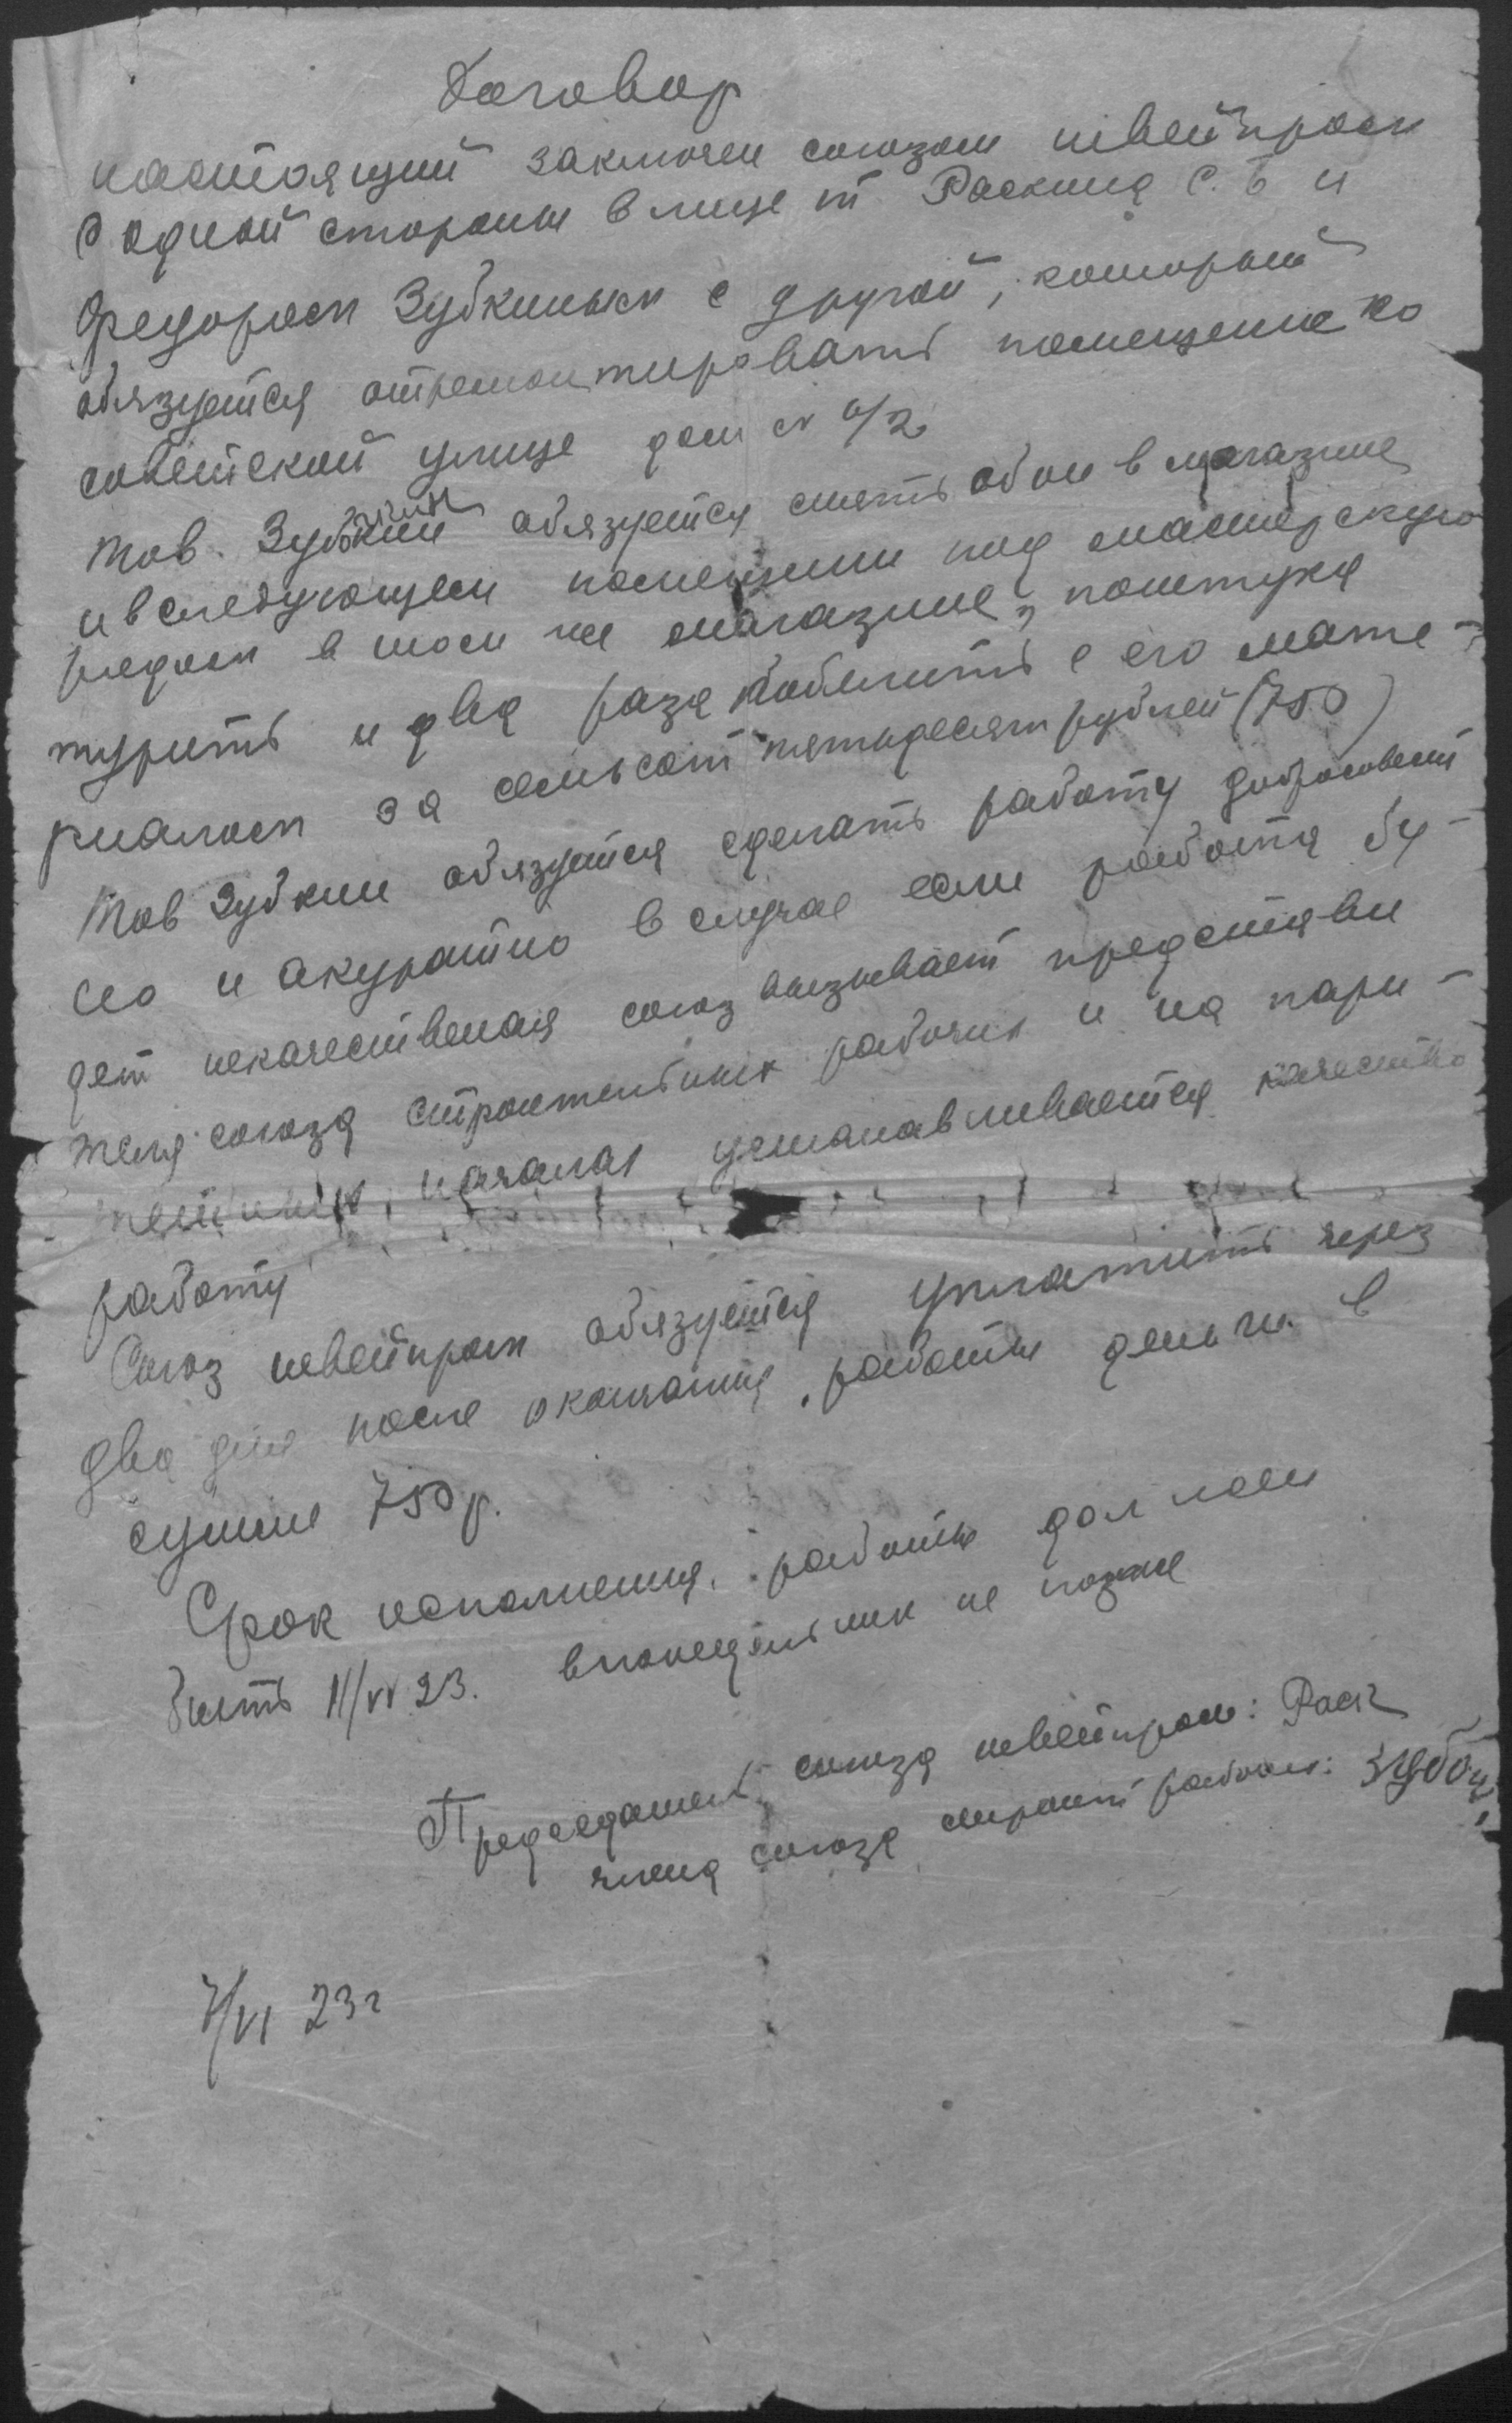 Договор
настоящий заключен союзом швейпром
с одной стороны в лице т Раскина С. Б и
Федором Зубкиным с другой, который
обязуется отремонтировать помещение по
советской улице дом №
Тов. Зубкин обязуется снять обои в магазине
и в следующем помещении под мастерскую
рядом в том же магазине, поштука
турить и два раза побелить с его мате-
риалом за семьсот пятьдесят рублей (750)
Тов Зубкин обязуется сделать работу добросовест
но и акуратно в случае если работа бу-
дет некачественая союз вызывает представи
теля союза строительных рабочих и на пари-
тетных началах устанавливается качество
работу
Союз швейпром обязуется уплатить через
два дня после окончания работы деньги в
сумме 750 р.
Срок исполнения работы должен
быть 11/VI 23. в понедельник не позже
Председатель союза швейпром: Раск
члена союза строит рабочих: Зубки
7/VI 23 г